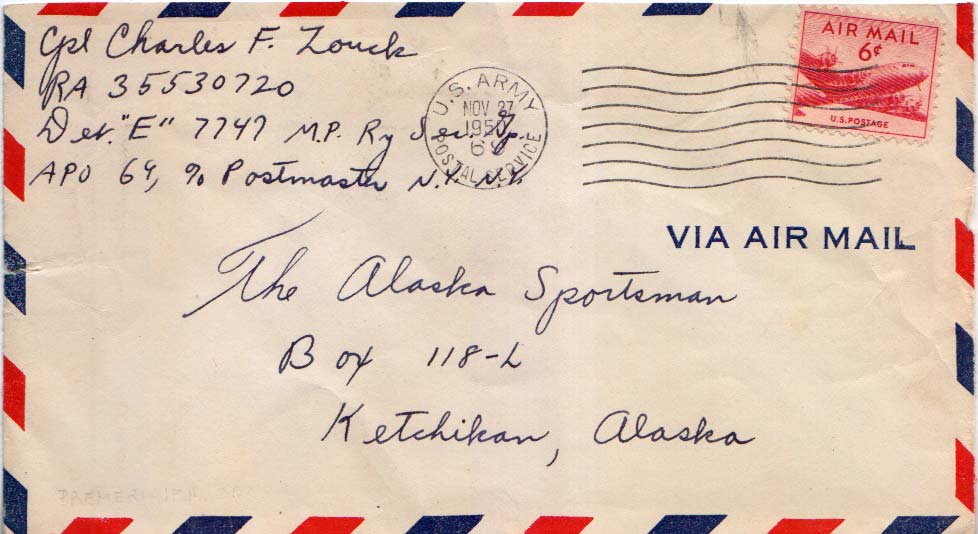 Cpl Charles F. Zouck
RA 35530720
Det. "E" 7747 M.P. Ry Sec.
APO 69, % Postmaster N.Y. N.Y.
U.S. ARMY
NOV 27
1950
69
POSTAL SERVICE
AIR MAIL
6¢
U.S. POSTAGE
VIA AIR MAIL
The Alaska Sportsman
Box 118-L
Ketchikan, Alaska